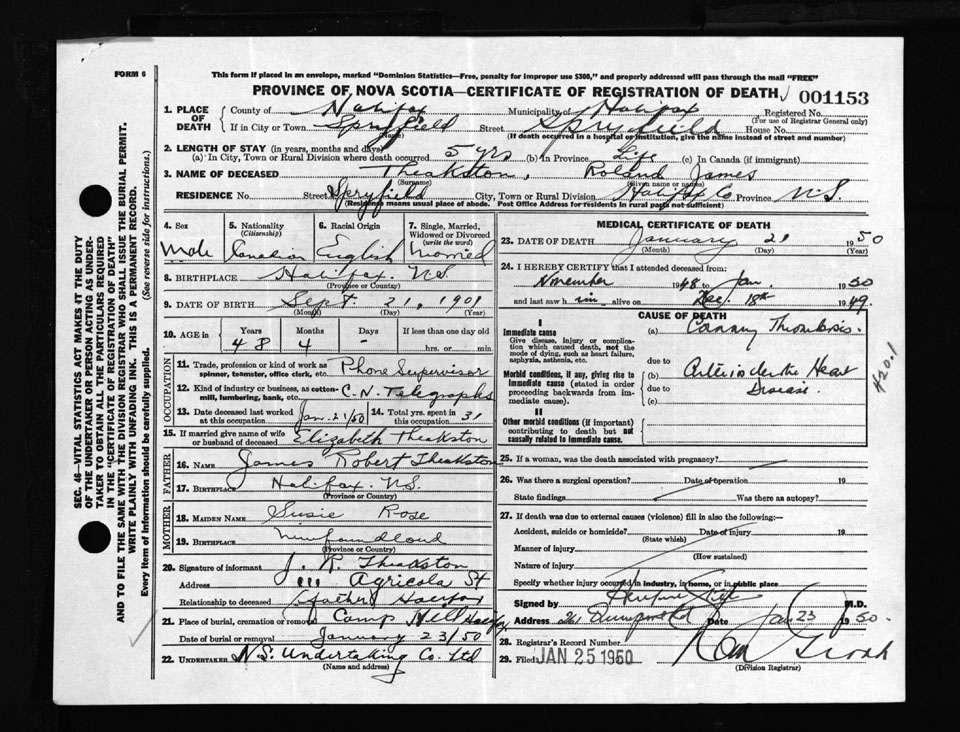 FORM 6
This form if placed in an envelope, marked "Dominion Statistics—Free, penalty for improper use $300," and properly addressed will pass through the mail "FREE"
PROVINCE OF NOVA SCOTIA—CERTIFICATE OF REGISTRATION OF DEATH 001153
SEC. 46—VITAL STATISTICS ACT MAKES IT THE DUTY
OF THE UNDERTAKER OR PERSON ACTING AS UNDER-
TAKER TO OBTAIN ALL THE PARTICULARS REQUIRED
IN THE "CERTIFICATE OF REGISTRATION OF DEATH"
AND TO FILE THE SAME WITH THE DIVISION REGISTRAR WHO SHALL ISSUE THE BURIAL PERMIT.
WRITE PLAINLY WITH UNFADING INK. THIS IS A PERMANENT RECORD.
Every item of information should be carefully supplied. (See reverse side for instructions.)
1. PLACE OF DEATH County of Halifax Municipality of Halifax Registered No.
(For use of Registrar General only)
If in City or Town Spryfield Street Spryfield House No.
(Name) (If death occurred in a hospital or institution, give the name instead of street and number)
2. LENGTH OF STAY (in years, months and days)
(a) In City, Town or Rural Division where death occurred 5 yrs (b) In Province Life (c) In Canada (if immigrant)
3. NAME OF DECEASED Theakston, Roland James
(Surname) (Given name or names)
RESIDENCE No. Street Spryfield City, Town or Rural Division Halifax Co Province N.S.
(Residence means usual place of abode. Post Office Address for residents in rural parts not sufficient)
4. Sex 5. Nationality (Citizenship) 6. Racial Origin 7. Single, Married, Widowed or Divorced (write the word)
Male Canadian English Married
8. BIRTHPLACE Halifax. N.S.
(Province or Country)
9. DATE OF BIRTH Sept. 21, 1901
(Month) (Day) (Year)
10. AGE in Years Months Days If less than one day old
48 4 - hrs. or min.
OCCUPATION
11. Trade, profession or kind of work as spinner, teamster, office clerk, etc. Phone Supervisor
12. Kind of industry or business, as cotton-mill, lumbering, bank, etc. C.N. Telegraphs
13. Date deceased last worked at this occupation Jan. 21/50 14. Total yrs. spent in this occupation 31
15. If married give name of wife or husband of deceased Elizabeth Theakston
FATHER
16. NAME James Robert Theakston
17. BIRTHPLACE Halifax. N.S.
(Province or Country)
MOTHER
18. MAIDEN NAME Susie Rose
19. BIRTHPLACE Newfoundland
(Province or Country)
20. Signature of informant J. R. Theakston
Address 111 Agricola St
Relationship to deceased (father) Halifax
21. Place of burial, cremation or removal Camp Hill Halifax
Date of burial or removal January 23/50
22. UNDERTAKER N.S. Undertaking Co. Ltd
(Name and address)
MEDICAL CERTIFICATE OF DEATH
23. DATE OF DEATH January 21 1950
(Month) (Day) (Year)
24. I HEREBY CERTIFY that I attended deceased from:
November 1948 to Jan. 1950
and last saw him alive on Dec. 18th 1949.
CAUSE OF DEATH
I
Immediate cause (a) Coronary Thrombosis.
Give disease, injury or complication which caused death, not the mode of dying, such as heart failure, asphyxia, asthenia, etc.
due to
Morbid conditions, if any, giving rise to immediate cause (stated in order proceeding backwards from immediate cause).
(b) Arteriosclerotic Heart
due to Disease
(c)
4201
II
Other morbid conditions (if important) contributing to death but not causally related to immediate cause.
25. If a woman, was the death associated with pregnancy?
26. Was there a surgical operation? Date of operation 19
State findings Was there an autopsy?
27. If death was due to external causes (violence) fill in also the following:—
Accident, suicide or homicide? Date of injury 19
(State which)
Manner of injury
(How sustained)
Nature of injury
Specify whether injury occurred in industry, in home, or in public place
Signed by M.D.
Address Date Jan 23 1950.
28. Registrar's Record Number
29. Filed JAN 25 1950
(Division Registrar)